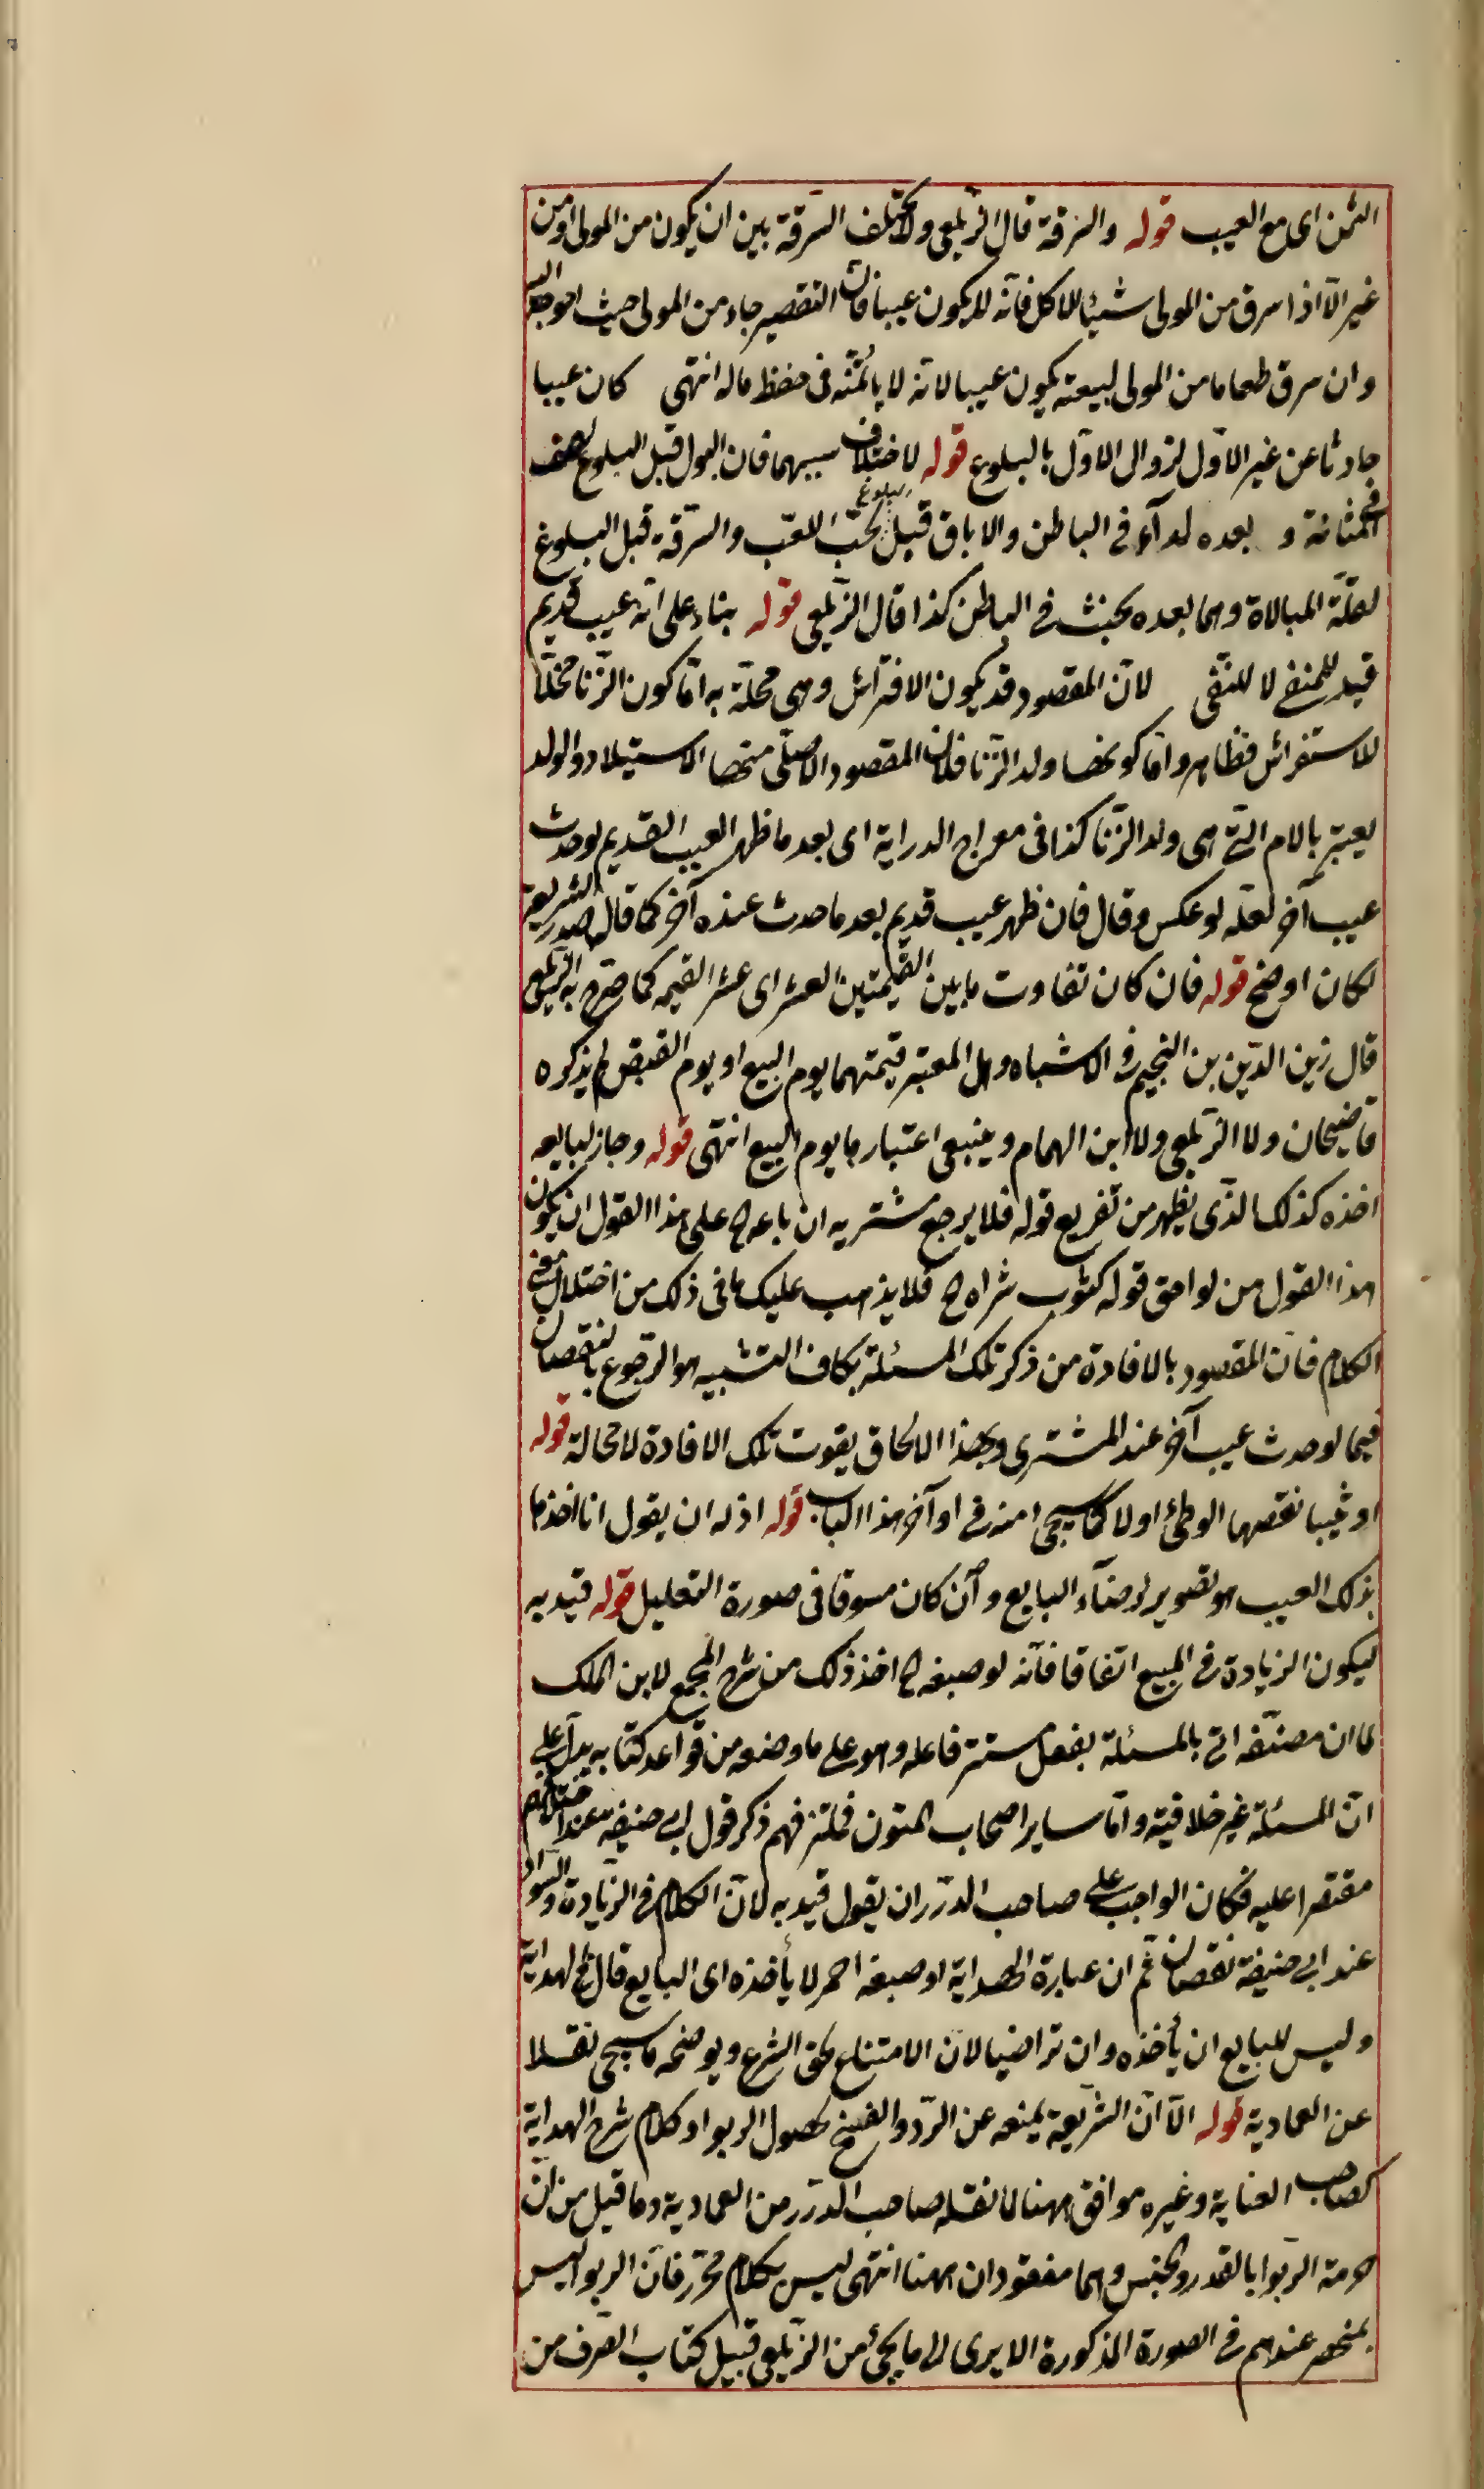 الثمن اى مع العيب قوله والسرقة قال الزيلعى ولا يختلف السرقة بين ان يكون من المولى او من
غير الا اذا سرق من المولى شيئا للاكل فانه لا يكون عيبا فان التقصير جاء من المولى حيث احوجه اليه
وان سرق طعاما من المولى ليبيعه يكون عيبا لانه لا يأتمنه فى حفظ ماله انتهى كان عيبا
حادثا عن غير الاول لزوال الاول بالبلوغ قوله لاختلاف سببهما فان البول قبل البلوغ لضعف
فى المثانة و بعده لداء فى الباطن والاباق قبل البلوغ لحب اللعب والسرقة قبل البلوغ
لقلة المبالاة وهما بعده لخبث فى الباطن كذا قال الزيلعى قوله بناء على انه عيب قديم
قيد للمنفى لا للنفى لان المقصود قد يكون الافتراش وهى مخلة به اما كون الزنا مخلا
للاستفراش فظاهر واما كونها ولد الزنا فلان المقصود الاصلى منها الاستيلاد والولد
يعتبر بالام التى هى ولد الزنا كذا فى معراج الدراية اى بعد ما ظهر العيب القديم لو حدث
عيب آخر لعله لو عكس وقال فان ظهر عيب قديم بعد ما حدث عنده آخر كما قال صدر الشريعة
لكان اوضح قوله فان كان تفاوت ما بين القيمتين العشر اى عشر القيمه كما صرح به الزيلعى
قال زين الدين بن النجيم فى الاشباه وهل المعتبر قيمتهما يوم البيع او يوم القبض لم يذكره
قاضيخان ولا الزيلعى ولا ابن الهمام وينبغى اعتبارها يوم البيع انتهى قوله وجاز لبايعه
اخذه كذلك الذى يظهر من تفريع قوله فلا يرجع مشتريه ان باعه ح على هذا القول ان يكون
هذا القول من لواحق قوله كثوب شراه ح فلا يذهب عليك ما فى ذلك من اختلال معنى
الكلام فان المقصود بالافادة من ذكر تلك المسئلة بكاف التشبيه هو الرجوع بالنقصان
فيما لو حدث عيب آخر عند المشترى وبهذا الالحاق يفوت تلك الافادة لا محالة قوله
او ثيبا نقصها الوطئ اولا كما سيجئ منه فى اواخر هذا الباب قوله اذ له ان يقول انا اخذها
بذلك العيب هو تصوير لرضاء البايع وان كان مسوقا فى صورة التعليل قوله قيد به
ليكون الزيادة فى المبيع اتفاقا فانه لو صبغه ح اخذ ذلك من شرح المجمع لابن الملك
لما ان مصنفه اتى بالمسئلة بفعل مستتر فاعله وهو على ما وضعه من قواعد كتابه يدل على
ان المسئلة غير خلافية واما ساير اصحاب المتون فملتزمهم ذكر قول ابى حنيفه عند اختلافهم
مقتصرا عليه فكان الواجب على صاحب الدرر ان يقول قيد به لان الكلام فى الزيادة والسواد
عند ابى حنيفة نقصان ثم ان عبارة الهداية لو صبغه احمر لا يأخذه اى البايع قال فى الهداية
وليس للبايع ان يأخذه وان تراضيا لان الامتناع لحق الشرع ويوضحه ما سيجئ نقلا
عن العمادية قوله الا ان الشريعة يمنعه عن الرد والفسخ لحصول الربوا وكلام شرح الهداية
كصاحب العناية وغيره موافق ههنا لما نقله صاحب الدرر من العمادية وما قيل من ان
حرمة الربوا بالقدر والجنس وهما مفقودان ههنا انتهى ليس بكلام محرر فان الربوا ليس
بمنحصر عندهم فى الصورة المذكورة الا يرى الى ما يجئ من الزيلعى قبيل كتاب الصرف من